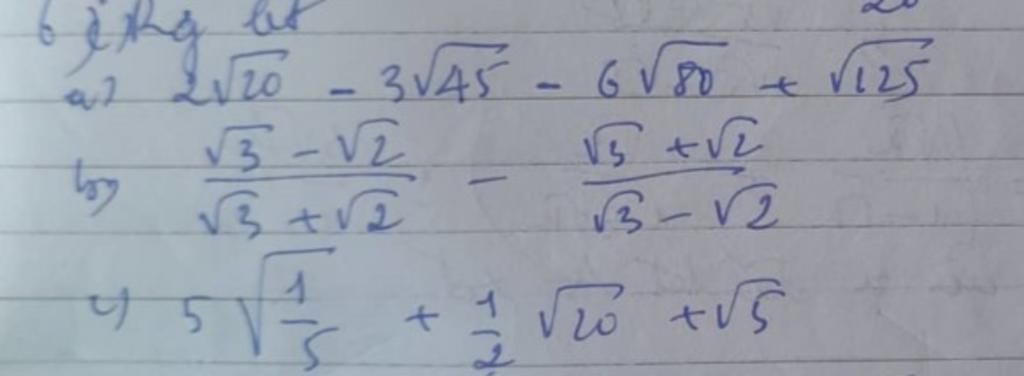 a) 2√20 - 3√45 - 6√80 + √125
b) (√3 - √2)/(√3 + √2) - (√3 + √2)/(√3 - √2)
c) 5√(1/5) + 1/2 √20 + √5